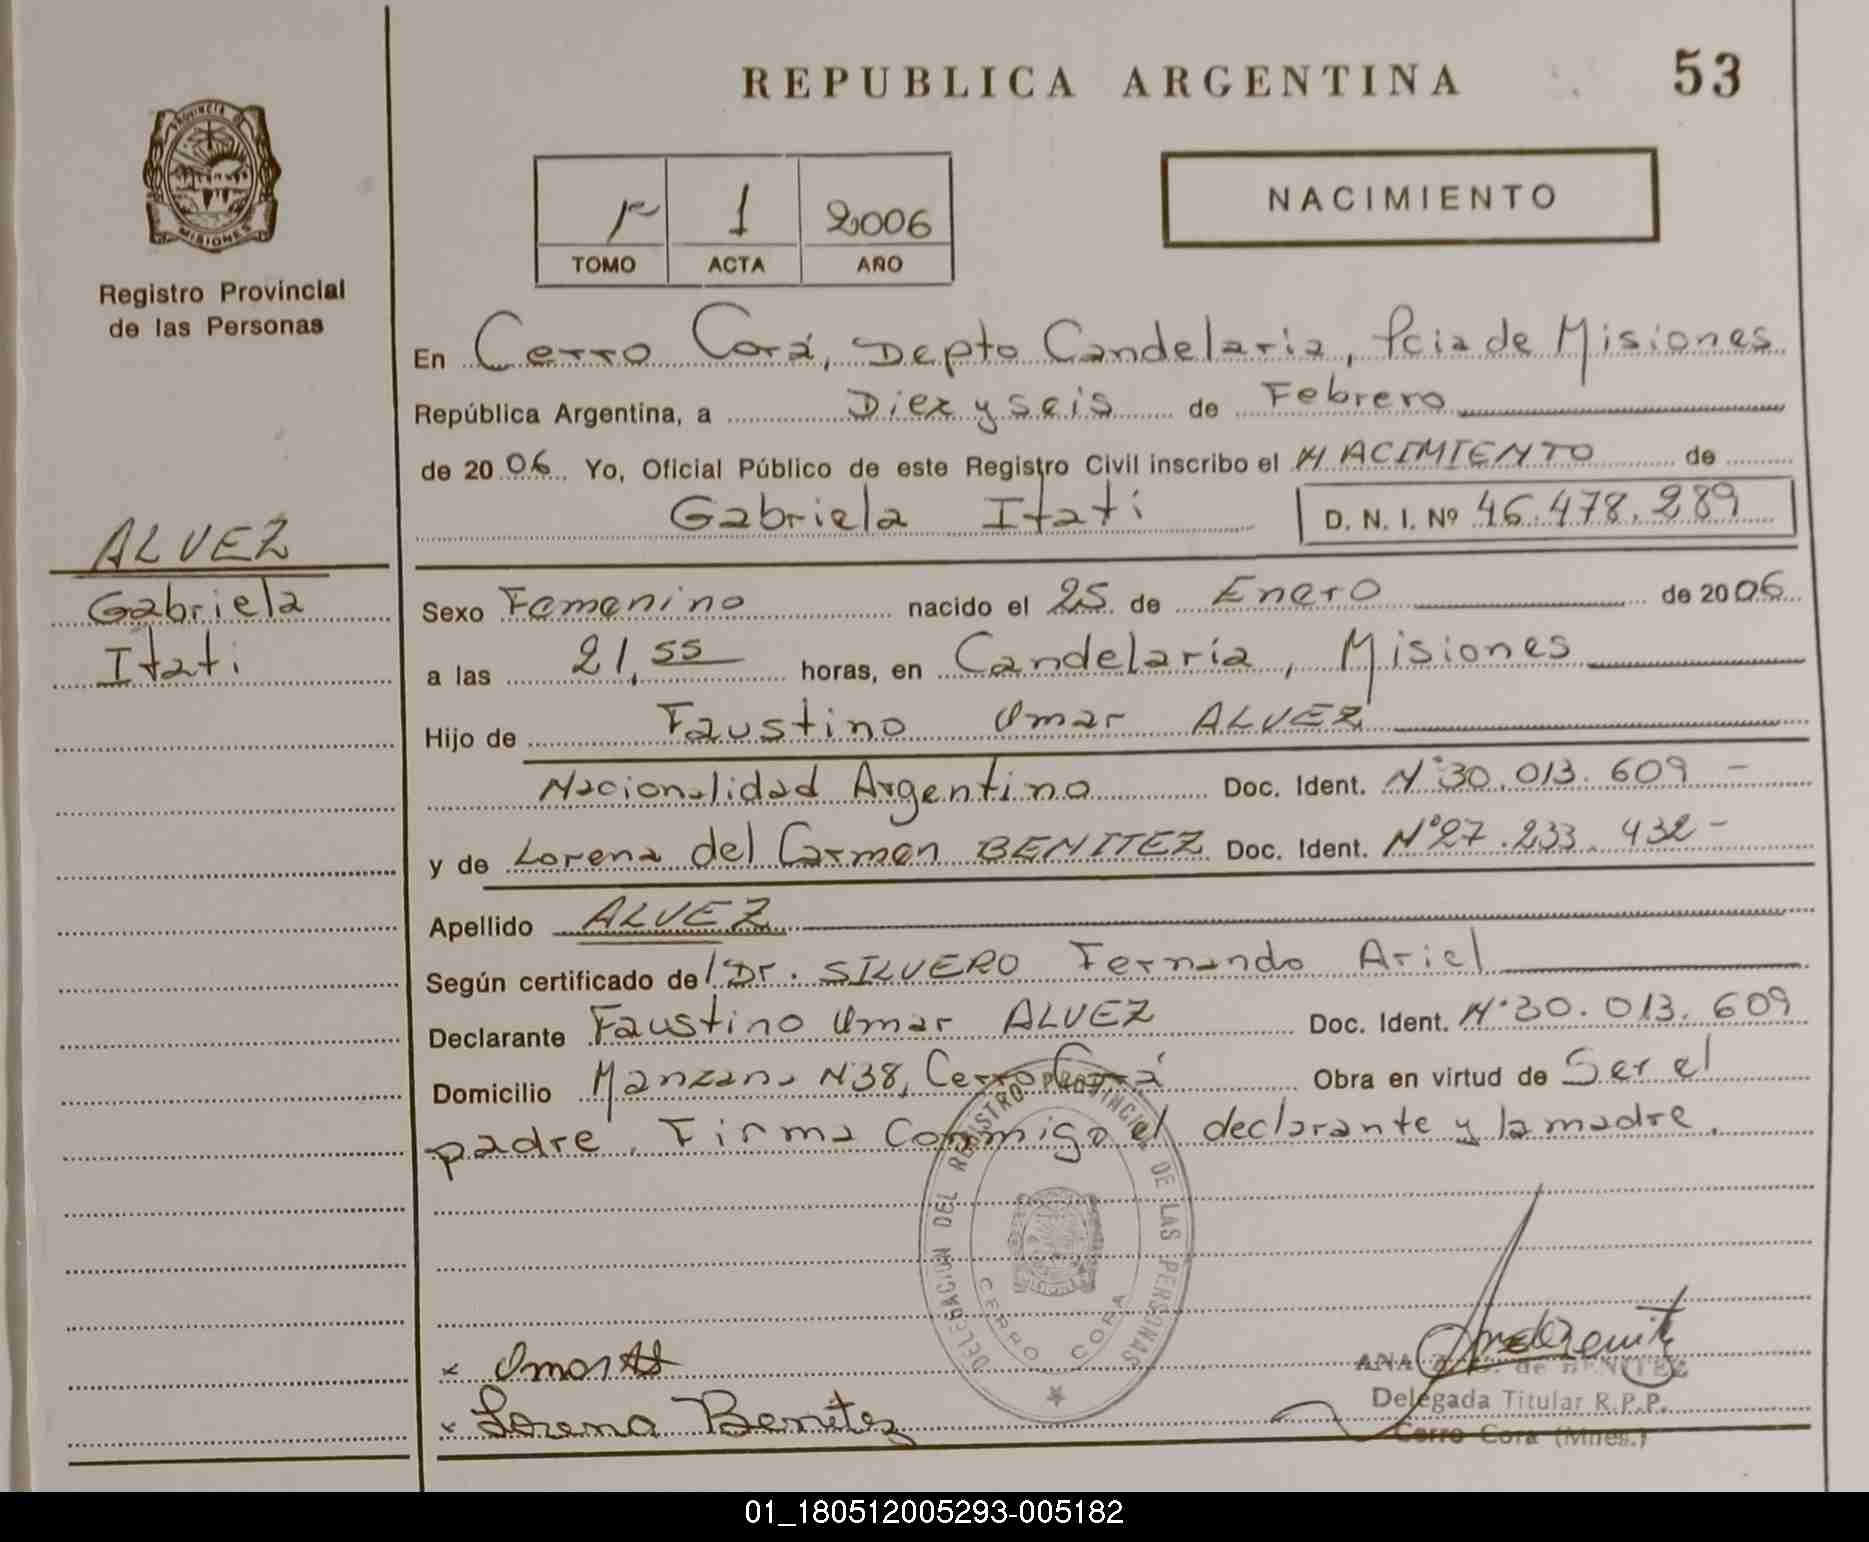 REPUBLICA ARGENTINA 53
PROVINCIA DE
MISIONES
Registro Provincial
de las Personas
1 2006
TOMO ACTA AÑO
NACIMIENTO
En Cerro Corá, Depto Candelaria, Pcia de Misiones
República Argentina, a Diez y seis de Febrero
de 2006. Yo, Oficial Público de este Registro Civil inscribo el NACIMIENTO de
Gabriela Itati D. N. I. Nº 46.478.289
ALVEZ
Gabriela
Itati
Sexo Femenino nacido el 25 de Enero de 2006
a las 21,55 horas, en Candelaria, Misiones
Hijo de Faustino Omar ALVEZ
Nacionalidad Argentino Doc. Ident. N°30.013.609 -
y de Lorena del Carmen BENITEZ Doc. Ident. N°27.233.432 -
Apellido ALVEZ
Según certificado de Dr. SILVERO Fernando Ariel
Declarante Faustino Omar ALVEZ Doc. Ident. N°30.013.609
Domicilio Manzana N38, Cerro Corá Obra en virtud de Ser el
padre. Firma Conmigo el declarante y la madre.
DELEGACION DEL REGISTRO PROVINCIAL DE LAS PERSONAS
CERRO CORA
x Omar
x Lorena Benitez
ANA de BENITEZ
Delegada Titular R.P.P.
Cerro Cora (Mnes.)
01_180512005293-005182